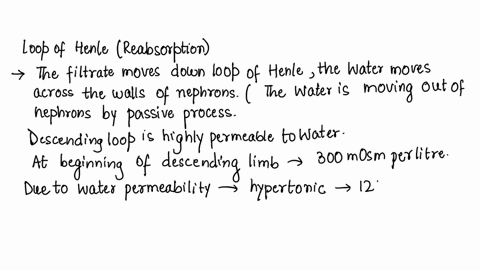 Loop of Henle (Reabsorption)
→ The filtrate moves down loop of Henle, the water moves
across the walls of nephrons. ( The water is moving out of
nephrons by passive process.
Descending loop is highly permeable to water.
At beginning of descending limb → 300 mOsm per litre.
Due to water permeability → hypertonic → 12